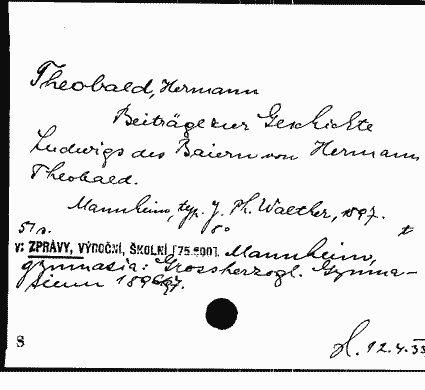 Theobald, Hermann
Beiträge zur Geschichte
Ludwigs des Baiern von Hermann
Theobald.
Mannheim, typ. J. Ph. Walther, 1897.
51 s. 8° t
v: ZPRÁVY, VÝROČNÍ, ŠKOLNÍ [75.500]. Mannheim,
gymnasia: Grossherzogl. Gymna-
sium 1896/97.
8 H. 12.4.33